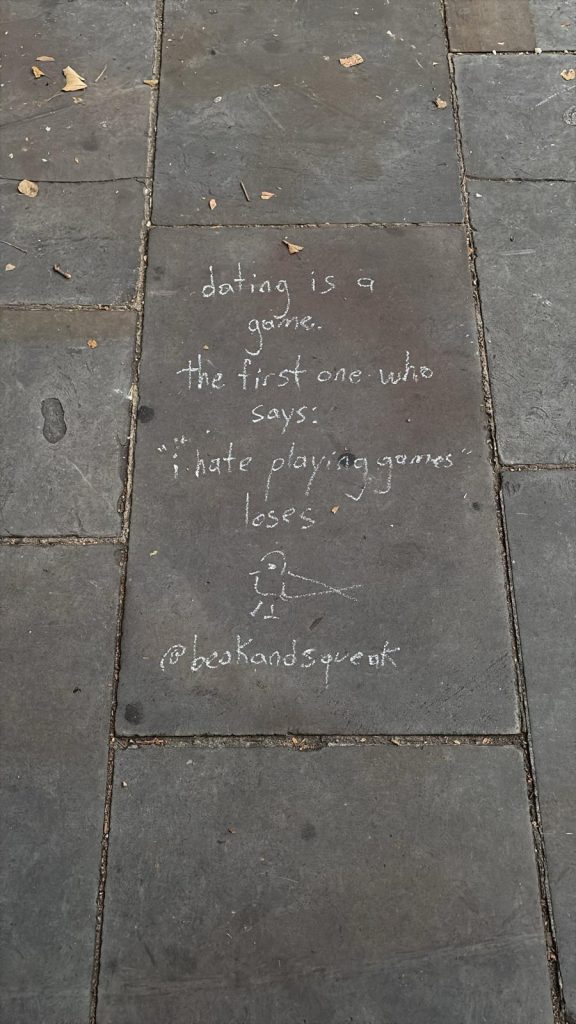 dating is a
game.
the first one who
says:
"i hate playing games"
loses
@beakandsqueak